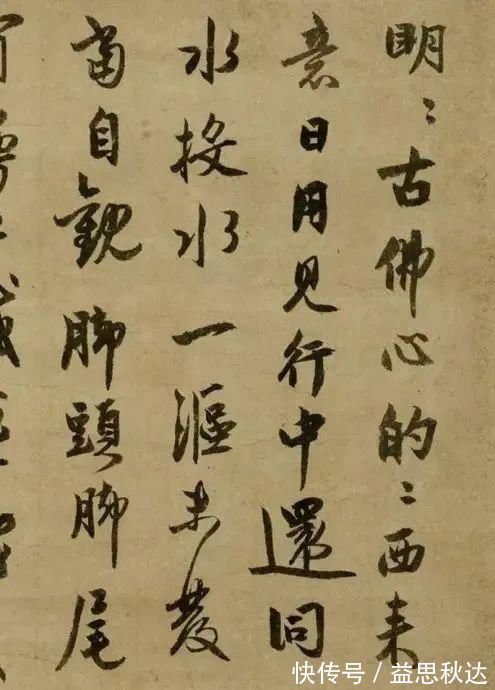 明〻古佛心的〻西来
意日用見行中還同
水投水一漚未發
當自觀脚頭脚尾
快传号 / 益思秋达